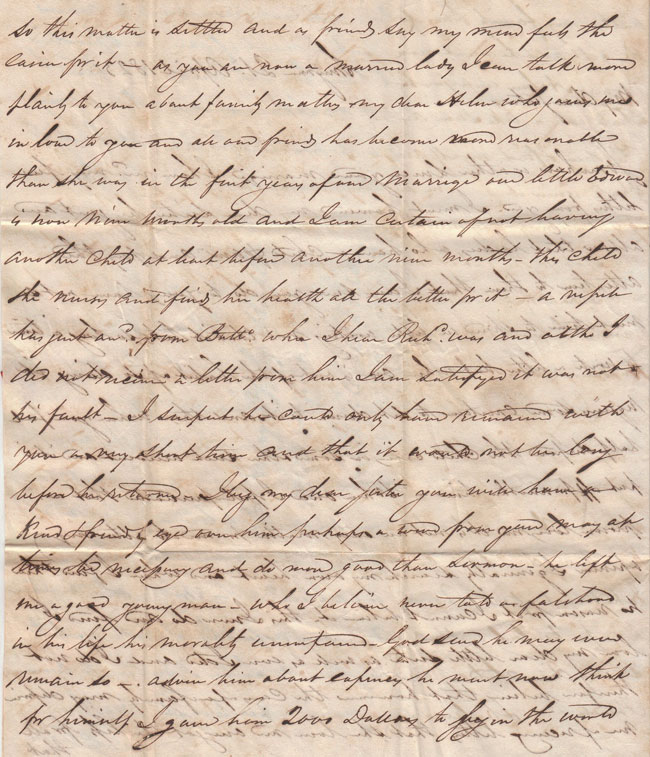 so this matter is settled and as friends say my mind feels the
easier for it – as you are now a married lady I can talk more
plainly to you about family matters my dear Helen who joins me
in love to you and all our friends has become more reasonable
than she was in the first years of our Marriage our little Edward
is now Nine Months old and I am certain of not having
another Child at least before another nine months – this Child
she nurses and finds her health all the better for it – a vessel
has just an.d from Balto. where I hear Rich.d was and altho I
did not receive a letter from him I am satisfyed it was not
his fault – I suspect he could only have remained with
you a very short time and that it would not be long
before he returned – I beg my dear sister you will have a
Kind & friendly eye over him perhaps a word from you may at
times be necessary and do more good than sermon – he left
me a good young man – who I believe never told a falsehood
in his life his morality uninjured – God send he may ever
remain so – advise him about expences he must now think
for himself I gave him 2000 Dollars to begin the world